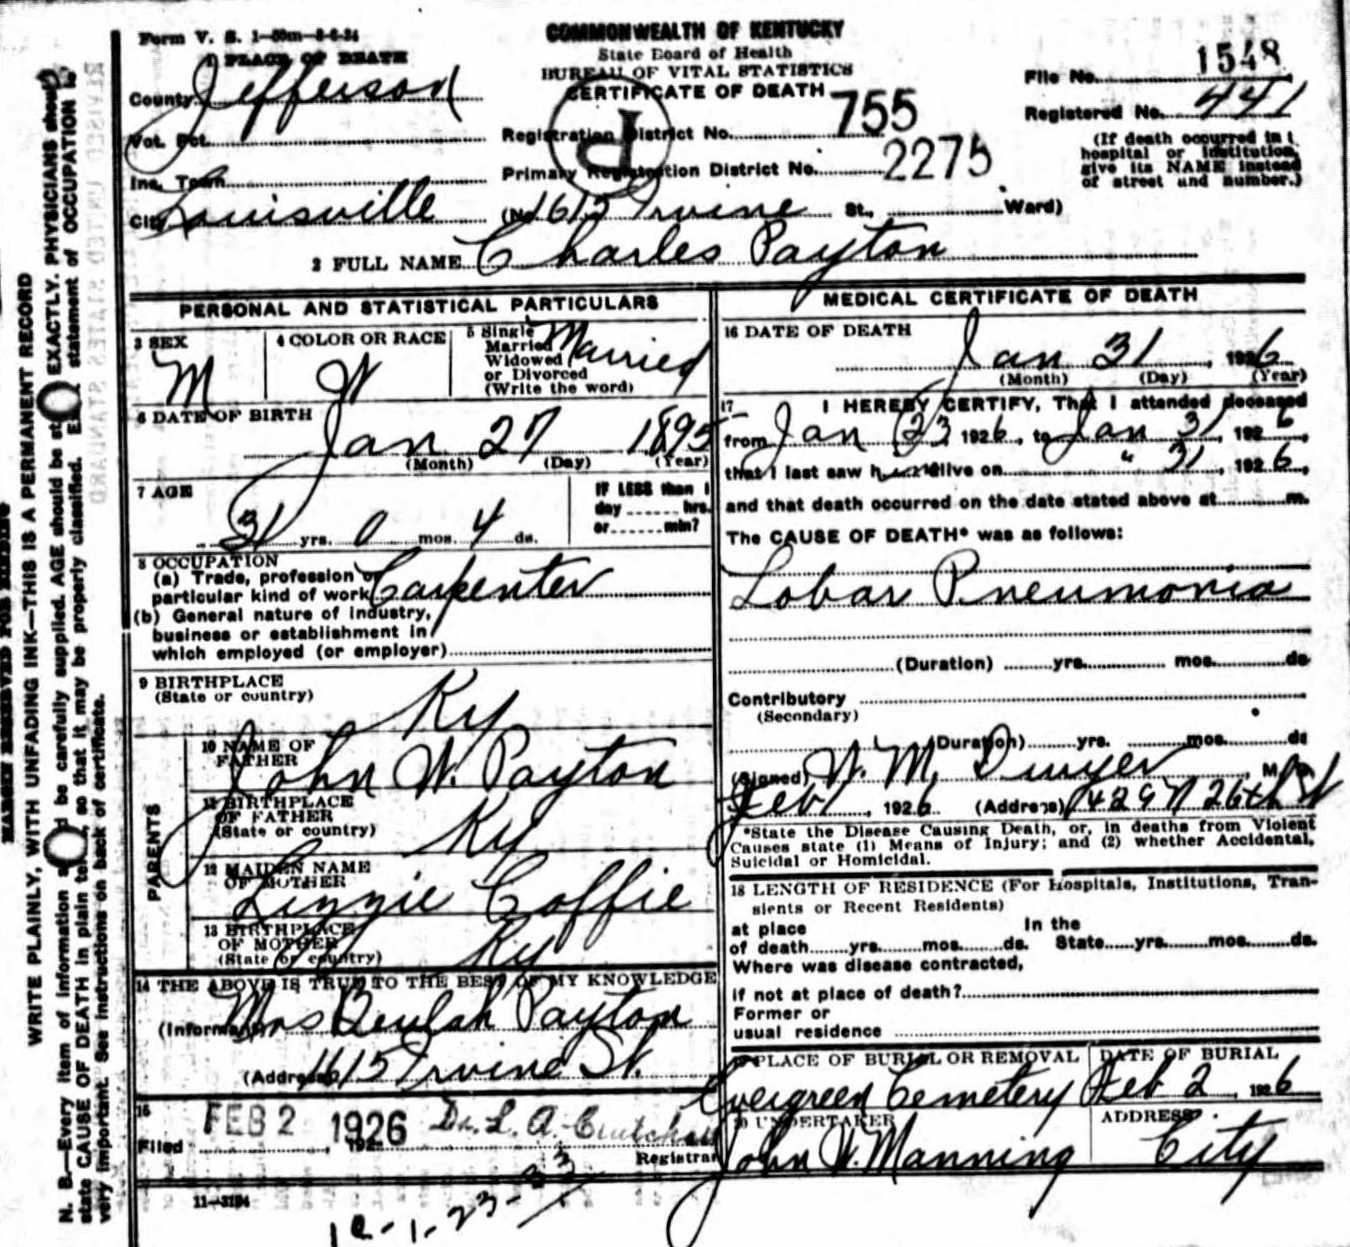 Form V. S. 1—50m—8-6-24
COMMONWEALTH OF KENTUCKY
State Board of Health
BUREAU OF VITAL STATISTICS
CERTIFICATE OF DEATH
File No. 1548
Registered No. 441
(If death occurred in a
hospital or institution,
give its NAME instead
of street and number.)
1 PLACE OF DEATH
County Jefferson
Vot. Pct.
Inc. Town
City Louisville
Registration District No. 755
Primary Registration District No. 2275
(No. 1615 Irvine St., Ward)
2 FULL NAME Charles Payton
PERSONAL AND STATISTICAL PARTICULARS
3 SEX
M
4 COLOR OR RACE
W
5 Single
Married
Widowed
or Divorced
(Write the word)
Married
6 DATE OF BIRTH
Jan 27 1895
(Month) (Day) (Year)
7 AGE
31 yrs. 0 mos. 4 ds.
IF LESS than 1
day hrs.
or min?
8 OCCUPATION
(a) Trade, profession or
particular kind of work Carpenter
(b) General nature of industry,
business or establishment in
which employed (or employer)
9 BIRTHPLACE
(State or country)
Ky
PARENTS
10 NAME OF
FATHER
John W. Payton
11 BIRTHPLACE
OF FATHER
(State or country)
Ky
12 MAIDEN NAME
OF MOTHER
Lizzie Coffie
13 BIRTHPLACE
OF MOTHER
(State or country)
Ky
14 THE ABOVE IS TRUE TO THE BEST OF MY KNOWLEDGE
(Informant) Mrs Beulah Payton
(Address) 1615 Irvine St.
15
Filed FEB 2 1926 , 192
Dr. L. A.
Registrar
11—3184
MEDICAL CERTIFICATE OF DEATH
16 DATE OF DEATH
Jan 31 , 1926
(Month) (Day) (Year)
17 I HEREBY CERTIFY, That I attended deceased
from Jan 23 1926, to Jan 31, 1926,
that I last saw him alive on " 31, 1926,
and that death occurred on the date stated above at m.
The CAUSE OF DEATH* was as follows:
Lobar Pneumonia
(Duration) yrs. mos. ds.
Contributory
(Secondary)
(Duration) yrs. mos. ds.
(Signed) W. M. Dwyer M. D.
Feb 1, 1926 (Address) 429 N 26th St
*State the Disease Causing Death, or, in deaths from Violent
Causes state (1) Means of Injury; and (2) whether Accidental,
Suicidal or Homicidal.
18 LENGTH OF RESIDENCE (For Hospitals, Institutions, Tran-
sients or Recent Residents)
at place In the
of death yrs. mos. ds. State yrs. mos. ds.
Where was disease contracted,
if not at place of death?
Former or
usual residence
19 PLACE OF BURIAL OR REMOVAL
Evergreen Cemetery
DATE OF BURIAL
Feb 2, 1926
20 UNDERTAKER
John W. Manning
ADDRESS
City
MARGIN RESERVED FOR BINDING
WRITE PLAINLY, WITH UNFADING INK—THIS IS A PERMANENT RECORD
N. B.—Every item of information should be carefully supplied. AGE should be stated EXACTLY. PHYSICIANS should
state CAUSE OF DEATH in plain terms, so that it may be properly classified. Exact statement of OCCUPATION is
very important. See instructions on back of certificate.
REVISED UNITED STATES STANDARD